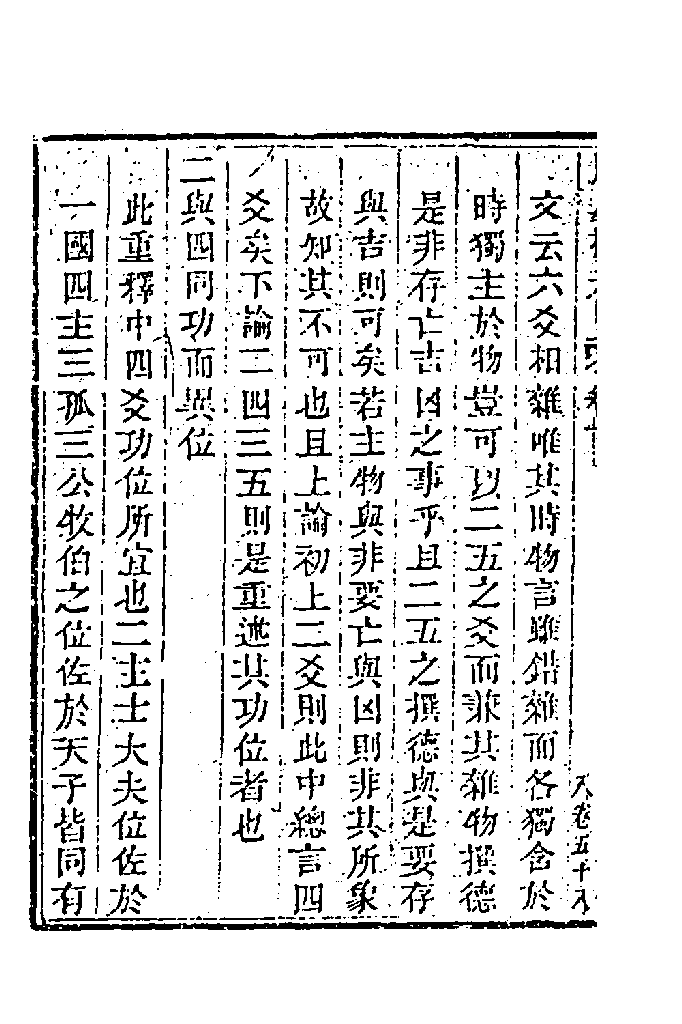 文云六爻相雜唯其時物言雖錯雜而各獨會於
時獨主於物豈可以二五之爻而兼其雜物撰德
是非存亡吉凶之事乎且二五之撰德與是要存
與吉則可矣若主物與非要亡與凶則非其所象
故知其不可也且上論初上二爻則此中總言四
爻矣下論二四三五則是重述其功位者也
二與四同功而異位
此重釋中四爻功位所宜也二主士大夫位佐於
一國四主三孤三公牧伯之位佐於天子皆同有